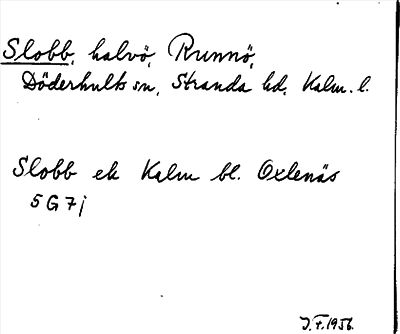 Slobb, halvö, Runnö,
Döderhults sn, Stranda hd, Kalm. l.
Slobb ek Kalm bl. Oxlenäs
5 G 7 j
J.F. 1956.